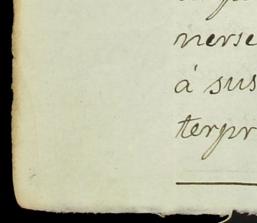 nerse
á sus
terpr